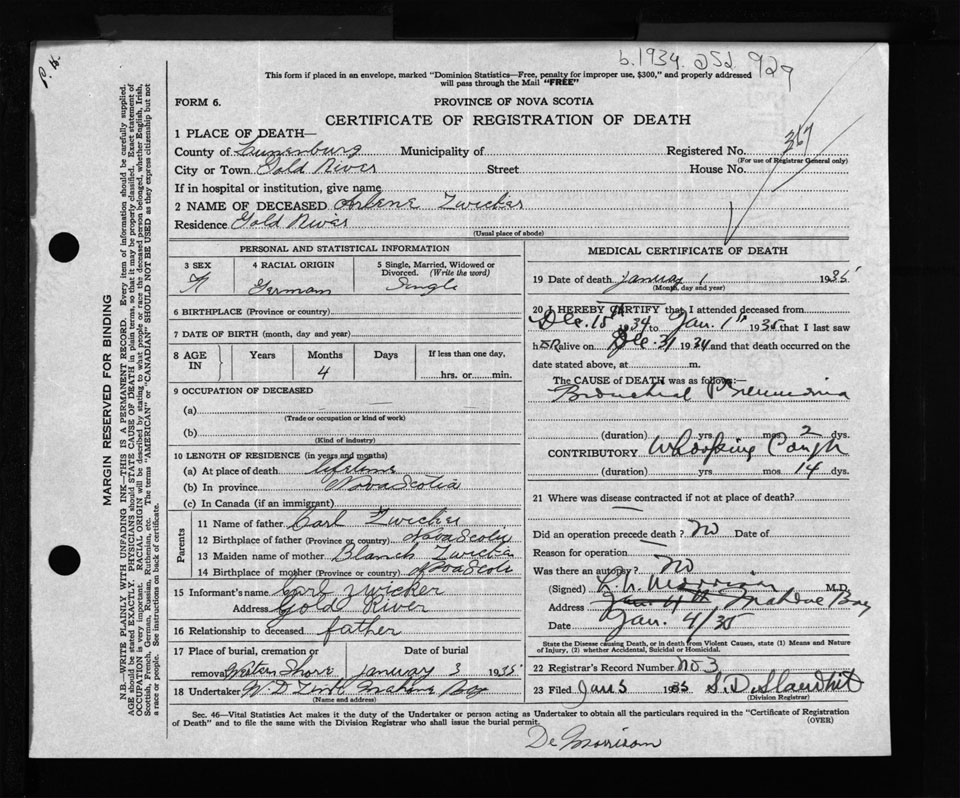 P. K.
b.1934. 252 929
This form if placed in an envelope, marked "Dominion Statistics—Free, penalty for improper use, $300," and properly addressed
will pass through the Mail "FREE"
FORM 6.
PROVINCE OF NOVA SCOTIA
CERTIFICATE OF REGISTRATION OF DEATH
1 PLACE OF DEATH—
County of Lunenburg Municipality of Registered No. 367
(For use of Registrar General only)
City or Town Gold River Street House No.
If in hospital or institution, give name
2 NAME OF DECEASED Arlene Zwicker
Residence Gold River
(Usual place of abode)
PERSONAL AND STATISTICAL INFORMATION
3 SEX 4 RACIAL ORIGIN 5 Single, Married, Widowed or
Divorced. (Write the word)
F German Single
6 BIRTHPLACE (Province or country)
7 DATE OF BIRTH (month, day and year)
8 AGE IN Years Months Days If less than one day,
4 hrs. or min.
9 OCCUPATION OF DECEASED
(a)
(Trade or occupation or kind of work)
(b)
(Kind of industry)
10 LENGTH OF RESIDENCE (in years and months)
(a) At place of death lifetime
(b) In province Nova Scotia
(c) In Canada (if an immigrant)
Parents
11 Name of father Carl Zwicker
12 Birthplace of father (Province or country) Nova Scotia
13 Maiden name of mother Blanch Zwicker
14 Birthplace of mother (Province or country) Nova Scoti
15 Informant's name Carl Zwicker
Address Gold River
16 Relationship to deceased father
17 Place of burial, cremation or Date of burial
removal Western Shore January 3 1935
18 Undertaker W. D. Zink Mahone Bay
(Name and address)
MEDICAL CERTIFICATE OF DEATH
19 Date of death January 1 1935
(Month, day and year)
20 I HEREBY CERTIFY that I attended deceased from
Dec. 15th 1934 to Jan. 1st 1935 that I last saw
h er alive on Dec. 31 1934 and that death occurred on the
date stated above, at m.
The CAUSE of DEATH was as follows:—
Bronchial Pneumonia
(duration) yrs. mos. 2 dys.
CONTRIBUTORY Whooping Cough
(duration) yrs. mos. 14 dys.
21 Where was disease contracted if not at place of death?
Did an operation precede death? No Date of
Reason for operation
Was there an autopsy? No
(Signed) Morrison M.D.
Address Jan. 4th Mahone Bay
Date Jan. 4/35
State the Disease causing Death, or in death from Violent Causes, state (1) Means and Nature
of Injury, (2) whether Accidental, Suicidal or Homicidal.
22 Registrar's Record Number No 3
23 Filed Jan 5 1935
(Division Registrar)
Sec. 46—Vital Statistics Act makes it the duty of the Undertaker or person acting as Undertaker to obtain all the particulars required in the "Certificate of Registration
of Death" and to file the same with the Division Registrar who shall issue the burial permit. (OVER)
Dr Morrison
MARGIN RESERVED FOR BINDING
N.B.—WRITE PLAINLY WITH UNFADING INK—THIS IS A PERMANENT RECORD. Every item of information should be carefully supplied.
AGE should be stated EXACTLY. PHYSICIANS should STATE CAUSE OF DEATH in plain terms, so that it may be properly classified. Exact statement of
OCCUPATION is very important. RACIAL ORIGIN will be described by stating to what people or race the deceased person belonged, whether English, Irish,
Scottish, French, German, Russian, Ruthenian, etc. The terms "AMERICAN" or "CANADIAN" SHOULD NOT BE USED as they express citizenship but not
a race or people. See instructions on back of certificate.